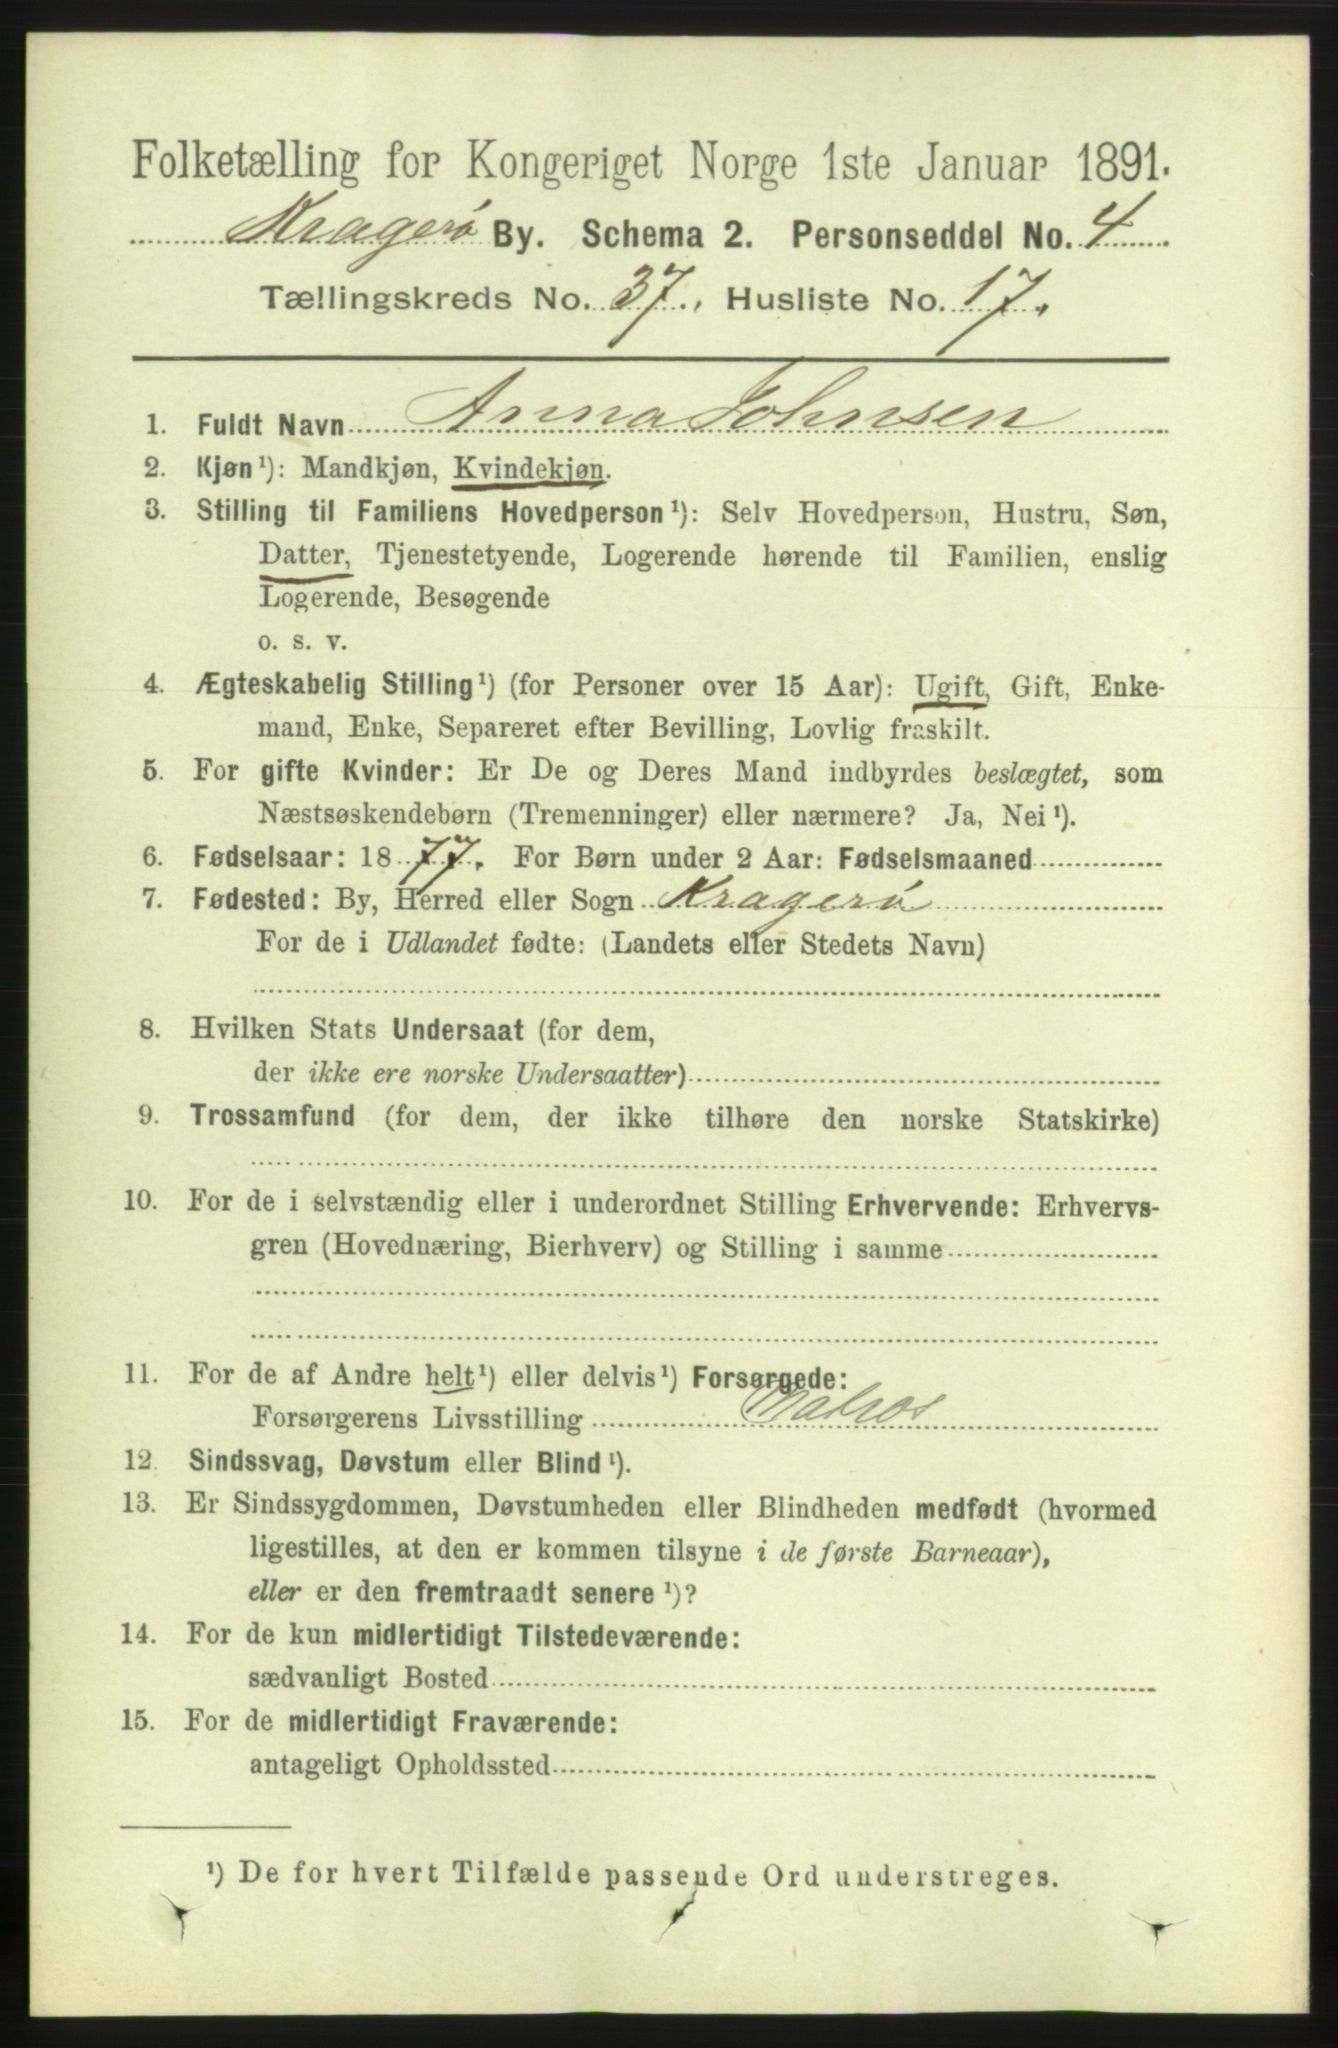 Folketælling for Kongeriget Norge 1ste Januar 1891.
Kragerø By. Schema 2. Personseddel No. 4
Tællingskreds No. 37. Husliste No. 17.
1. Fuldt Navn Anna Johnsen
2. Kjøn ¹): Mandkjøn, Kvindekjøn.
3. Stilling til Familiens Hovedperson ¹): Selv Hovedperson, Hustru, Søn,
Datter, Tjenestetyende, Logerende hørende til Familien, enslig
Logerende, Besøgende
o. s. v.
4. Ægteskabelig Stilling ¹) (for Personer over 15 Aar): Ugift, Gift, Enke-
mand, Enke, Separeret efter Bevilling, Lovlig fraskilt.
5. For gifte Kvinder: Er De og Deres Mand indbyrdes beslægtet, som
Næstsøskendebørn (Tremenninger) eller nærmere? Ja, Nei ¹).
6. Fødselsaar: 1877. For Børn under 2 Aar: Fødselsmaaned
7. Fødested: By, Herred eller Sogn Kragerø
For de i Udlandet fødte: (Landets eller Stedets Navn)
8. Hvilken Stats Undersaat (for dem,
der ikke ere norske Undersaatter)
9. Trossamfund (for dem, der ikke tilhøre den norske Statskirke)
10. For de i selvstændig eller i underordnet Stilling Erhvervende: Erhvervs-
gren (Hovednæring, Bierhverv) og Stilling i samme
11. For de af Andre helt ¹) eller delvis ¹) Forsørgede:
Forsørgerens Livsstilling Matros
12. Sindssvag, Døvstum eller Blind ¹).
13. Er Sindssygdommen, Døvstumheden eller Blindheden medfødt (hvormed
ligestilles, at den er kommen tilsyne i de første Barneaar),
eller er den fremtraadt senere ¹)?
14. For de kun midlertidigt Tilstedeværende:
sædvanligt Bosted
15. For de midlertidigt Fraværende:
antageligt Opholdssted
¹) De for hvert Tilfælde passende Ord understreges.